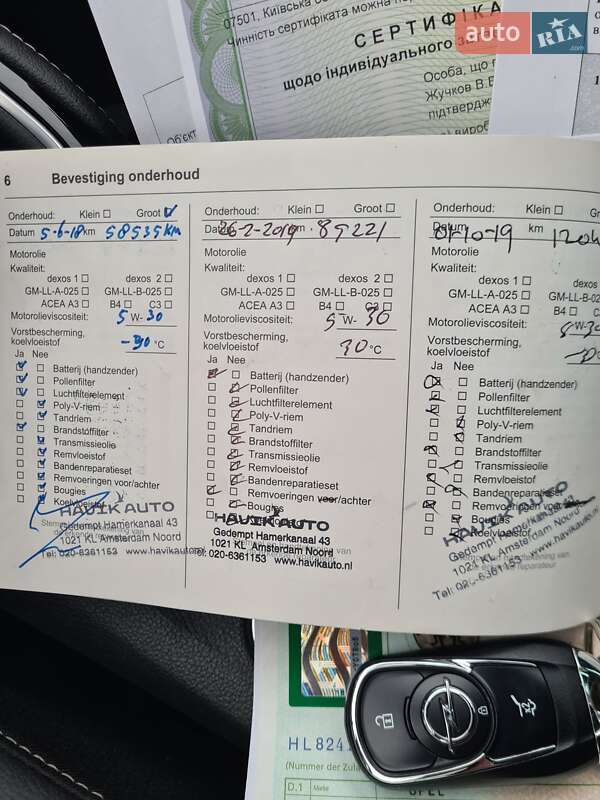 07501, Київська об
Чинність сертифіката можна пе
СЕРТИФІКА
щодо індивідуального за
Особа, що
Жучков В.В
підтвердж
вироб
Об'єкт
auto RIA
.com
6 Bevestiging onderhoud
Onderhoud: Klein Groot
Datum 5-6-18 km 58535KM
Motorolie
Kwaliteit:
dexos 1 dexos 2
GM-LL-A-025 GM-LL-B-025
ACEA A3 B4 C3
Motorolieviscositeit: 5 W-30
Vorstbescherming,
koelvloeistof -30 °C
Ja Nee
Batterij (handzender)
Pollenfilter
Luchtfilterelement
Poly-V-riem
Tandriem
Brandstoffilter
Transmissieolie
Remvloeistof
Bandenreparatieset
Remvoeringen voor/achter
Bougies
Koelvloeistof
HAVIK AUTO
Gedempt Hamerkanaal 43
1021 KL Amsterdam Noord
Tel: 020-6361153 www.havikauto
Onderhoud: Klein Groot
26-2-2019 85221
Motorolie
Kwaliteit:
dexos 1 dexos 2
GM-LL-A-025 GM-LL-B-025
ACEA A3 B4 C3
Motorolieviscositeit: 5 W-30
Vorstbescherming,
koelvloeistof 30 °C
Ja Nee
Batterij (handzender)
Pollenfilter
Luchtfilterelement
Poly-V-riem
Tandriem
Brandstoffilter
Transmissieolie
Remvloeistof
Bandenreparatieset
Remvoeringen voor/achter
Bougies
HAVIK AUTO
Gedempt Hamerkanaal 43
1021 KL Amsterdam Noord
Tel: 020-6361153 www.havikauto.nl
Onderhoud: Klein Groot
Datum 01-10-19 km 120k
Motorolie
Kwaliteit:
dexos 1 dexos
GM-LL-A-025 GM-LL-B-02
ACEA A3 B4 C
Motorolieviscositeit: 5 W-30
Vorstbescherming,
koelvloeistof
Ja Nee
Batterij (handzender)
Pollenfilter
Luchtfilterelement
Poly-V-riem
Tandriem
Brandstoffilter
Transmissieolie
Remvloeistof
Bandenreparatieset
Remvoeringen
Bougies
Koelvloeistof
HAVIK AUTO
Gedempt Hamerkanaal 43
1021 KL Amsterdam Noord
Tel: 020-6361153
HL824
(Nummer der Zula
D.1 Marke OPEL
x2